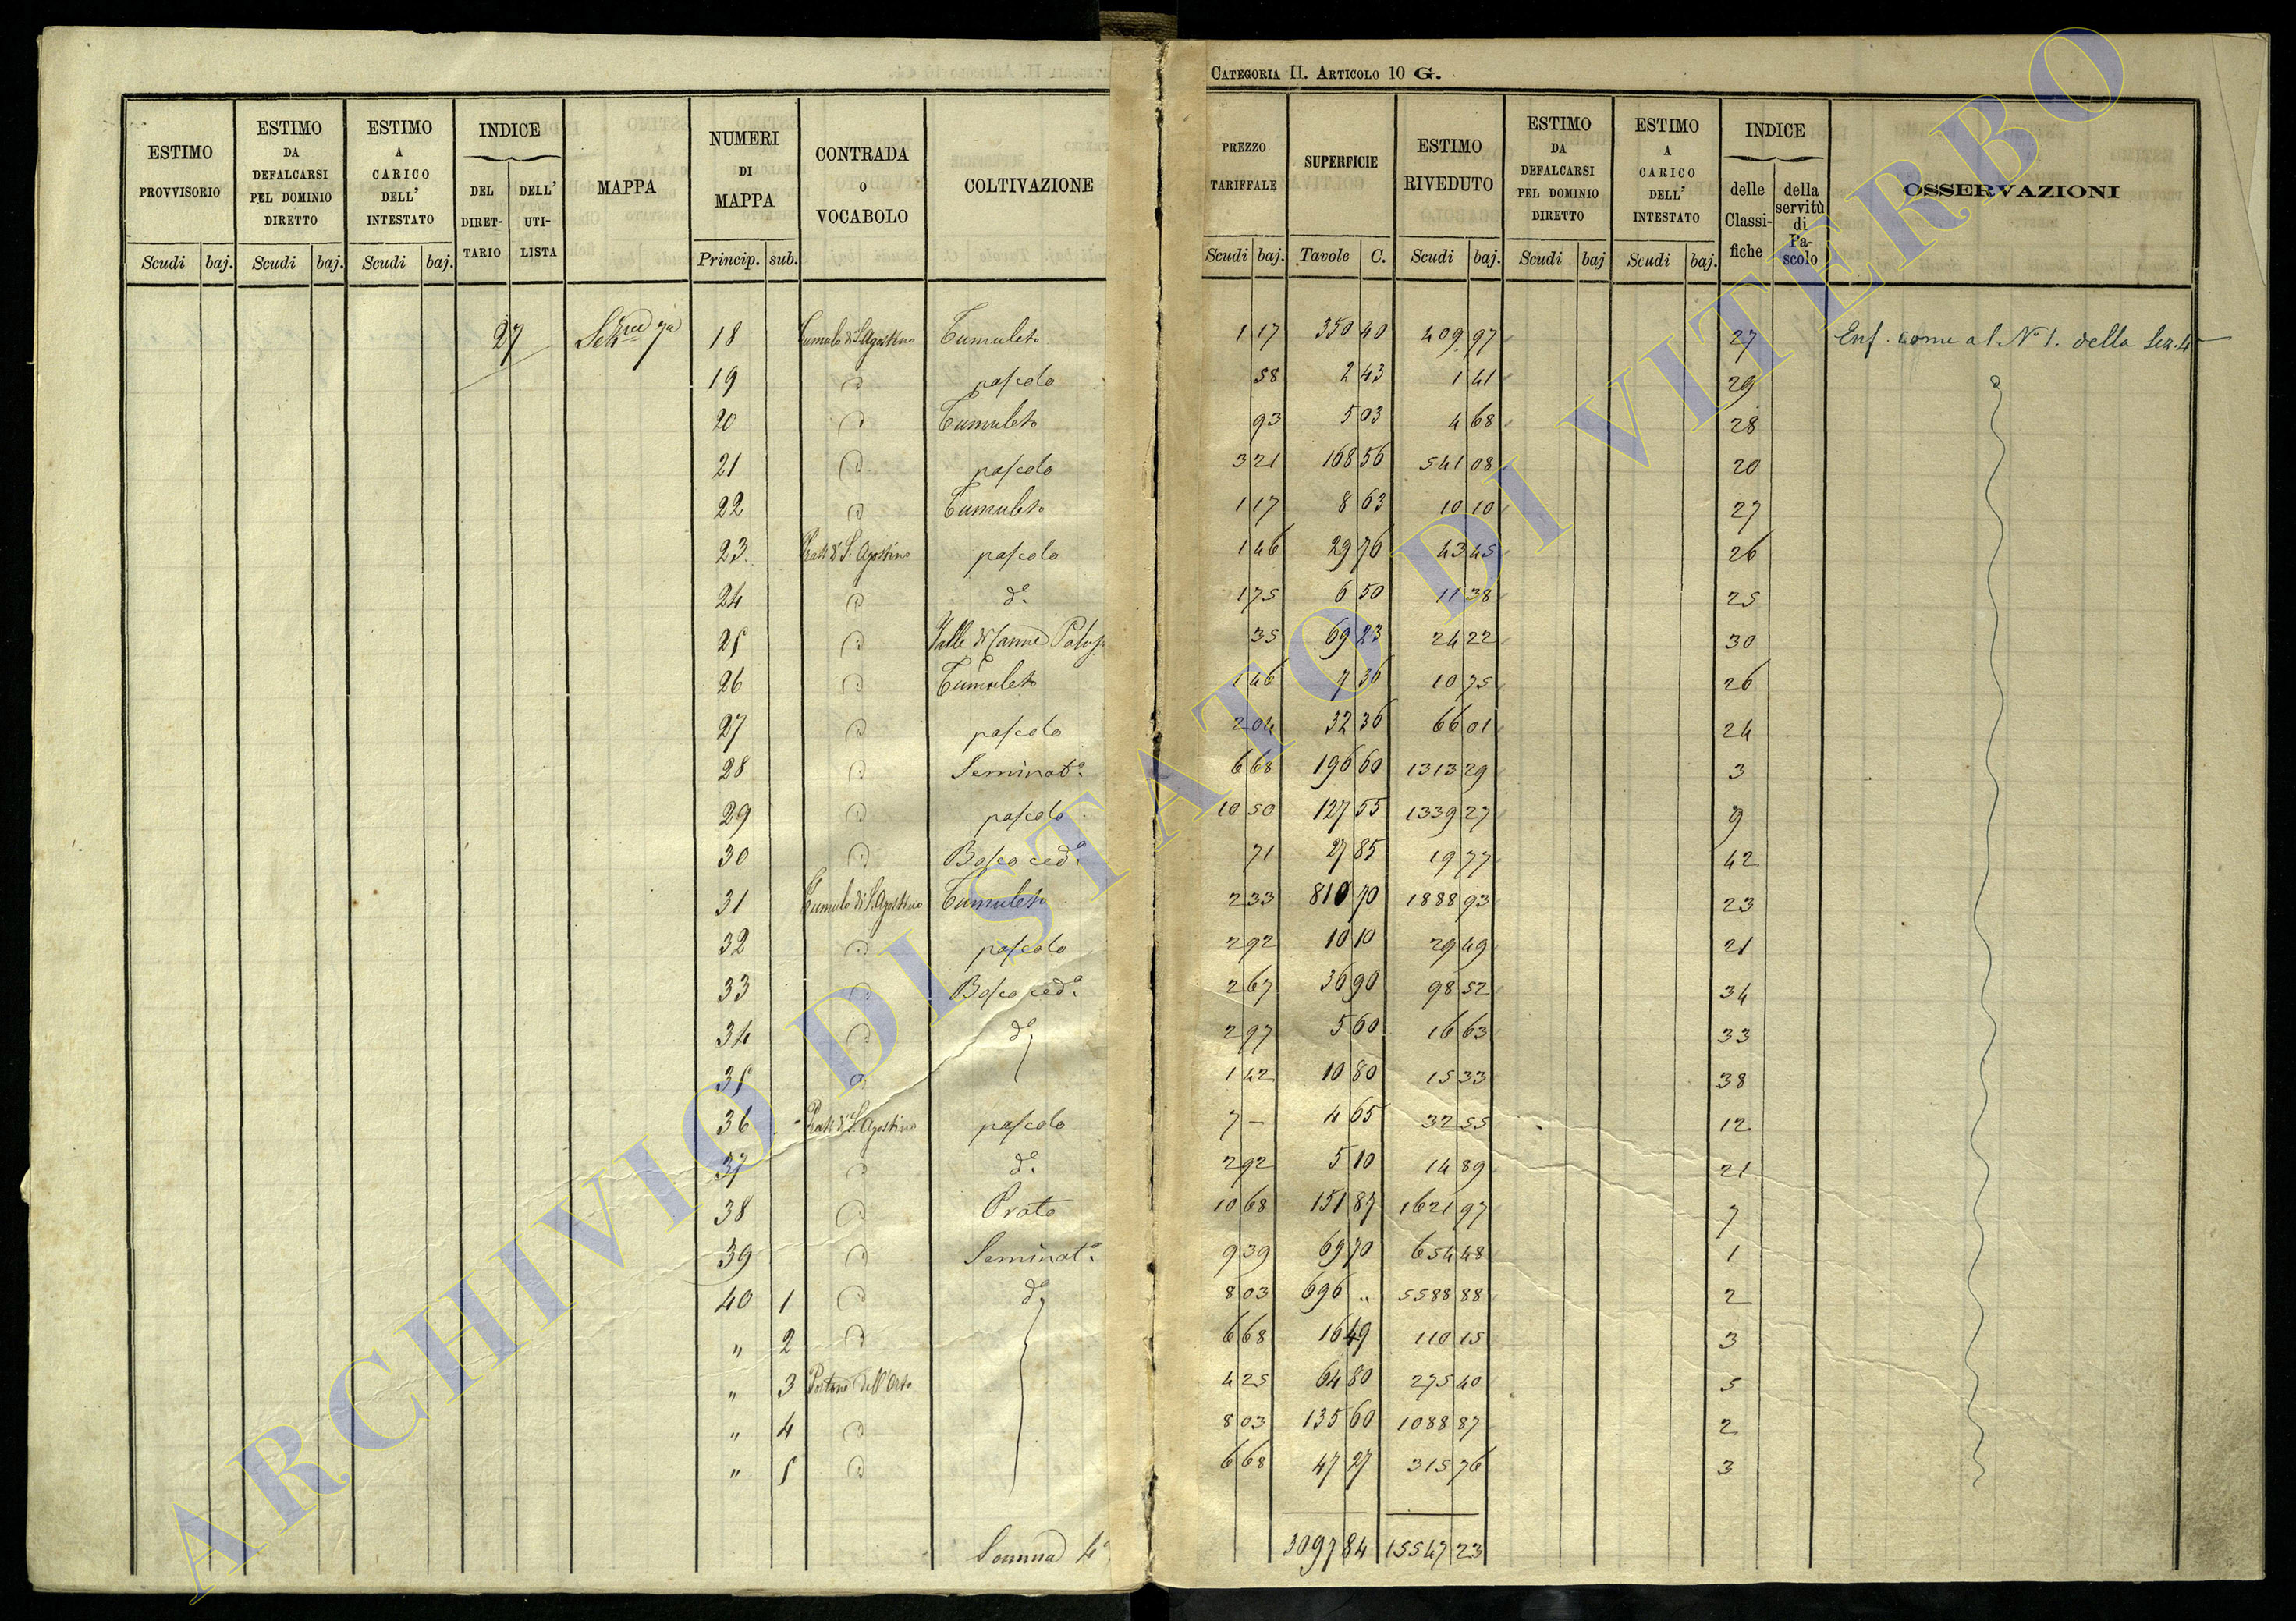 CATEGORIA II. ARTICOLO 10 G.
ESTIMO PROVVISORIO Scudi baj.
ESTIMO DA DEFALCARSI PEL DOMINIO DIRETTO Scudi baj.
ESTIMO A CARICO DELL' INTESTATO Scudi baj.
INDICE DEL DIRET-TARIO DELL' UTI-LISTA
MAPPA
NUMERI DI MAPPA Princip. sub.
CONTRADA O VOCABOLO
COLTIVAZIONE
PREZZO TARIFFALE Scudi baj.
SUPERFICIE Tavole C.
ESTIMO RIVEDUTO Scudi baj.
ESTIMO DA DEFALCARSI PEL DOMINIO DIRETTO Scudi baj
ESTIMO A CARICO DELL' INTESTATO Scudi baj.
INDICE delle Classi-fiche della servitù di Pa-scolo
OSSERVAZIONI
27 18 Tumulo di S. Agostino Tumuleto 1 17 350 40 409 97 27 Enf. come al N° 1. della Sez. 4
19 " pascolo 58 2 43 1 41 29 "
20 " Tumuleto 93 5 03 4 68 28
21 " pascolo 3 21 168 56 541 08 20
22 " Tumuleto 1 17 8 63 10 10 27
23 Prati di S. Agostino pascolo 1 46 29 76 43 45 26
24 " d° 1 75 6 50 11 38 25
25 " Valle di Canne 35 69 23 24 22 30
26 " Tumuleto 1 46 7 36 10 75 26
27 " pascolo 2 04 32 36 66 01 24
28 " Seminat° 6 68 196 60 1313 29 3
29 " pascolo 10 50 127 55 1339 27 9
30 " Bosco ced° 71 27 85 19 77 42
31 Tumulo di S. Agostino Tumuleto 2 33 810 70 1888 93 23
32 " pascolo 2 92 10 10 29 49 21
33 " Bosco ced° 2 67 36 90 98 52 34
34 " d° 2 97 5 60 16 63 33
35 " 1 42 10 80 15 33 38
36 Prati di S. Agostino pascolo 7 – 4 65 32 55 12
37 " d° 2 92 5 10 14 89 21
38 " Prato 10 68 151 87 1621 97 7
39 " Seminat° 9 39 69 70 654 48 1
40 1 " d° 8 03 696 " 5588 88 2
" 2 " 6 68 16 49 110 15 3
" 3 Portone dell'Orto 4 25 64 80 275 40 5
" 4 " 8 03 135 60 1088 87 2
" 5 " 6 68 47 27 315 76 3
Somma 3097 84 15547 23
ARCHIVIO DI STATO DI VITERBO